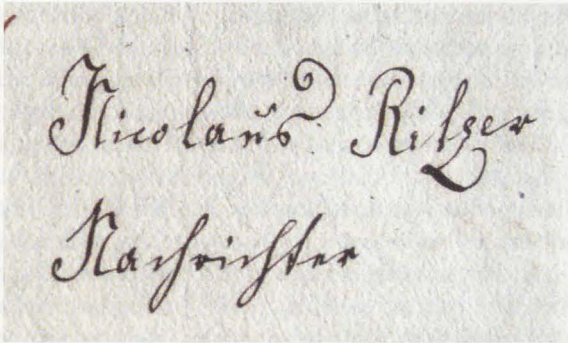 Nicolaus Ritzer
Nachrichter